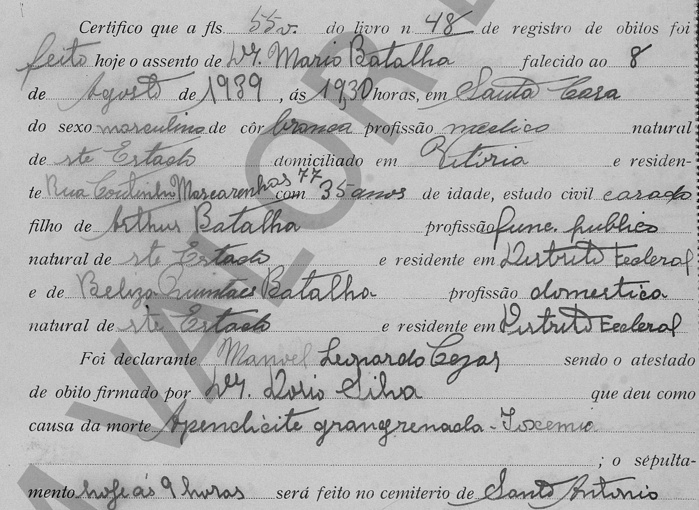 Certifico que a fls 55v. do livro n 48 de registro de obitos foi
feito hoje o assento de Dr. Mario Batalha falecido ao 8
de Agosto de 1939, ás 19,30 horas, em Santa Casa
do sexo masculino de côr branca profissão medico natural
de ste Estado domiciliado em Vitoria e residen-
te Rua Coutinho Mascarenhas 77 com 35 anos de idade, estado civil casado
filho de Arthur Batalha profissão func. publico
natural de ste Estado e residente em Distrito Federal
e de Beliza Quintaes Batalha profissão domestica
natural de ste Estado e residente em Distrito Federal
Foi declarante Manoel Leonardo Cezar sendo o atestado
de obito firmado por Dr. Dorio Silva que deu como
causa da morte Apendicite grangrenada - Toxemia
; o sepulta-
mento hoje ás 9 horas será feito no cemiterio de Santo Antonio
VALOR